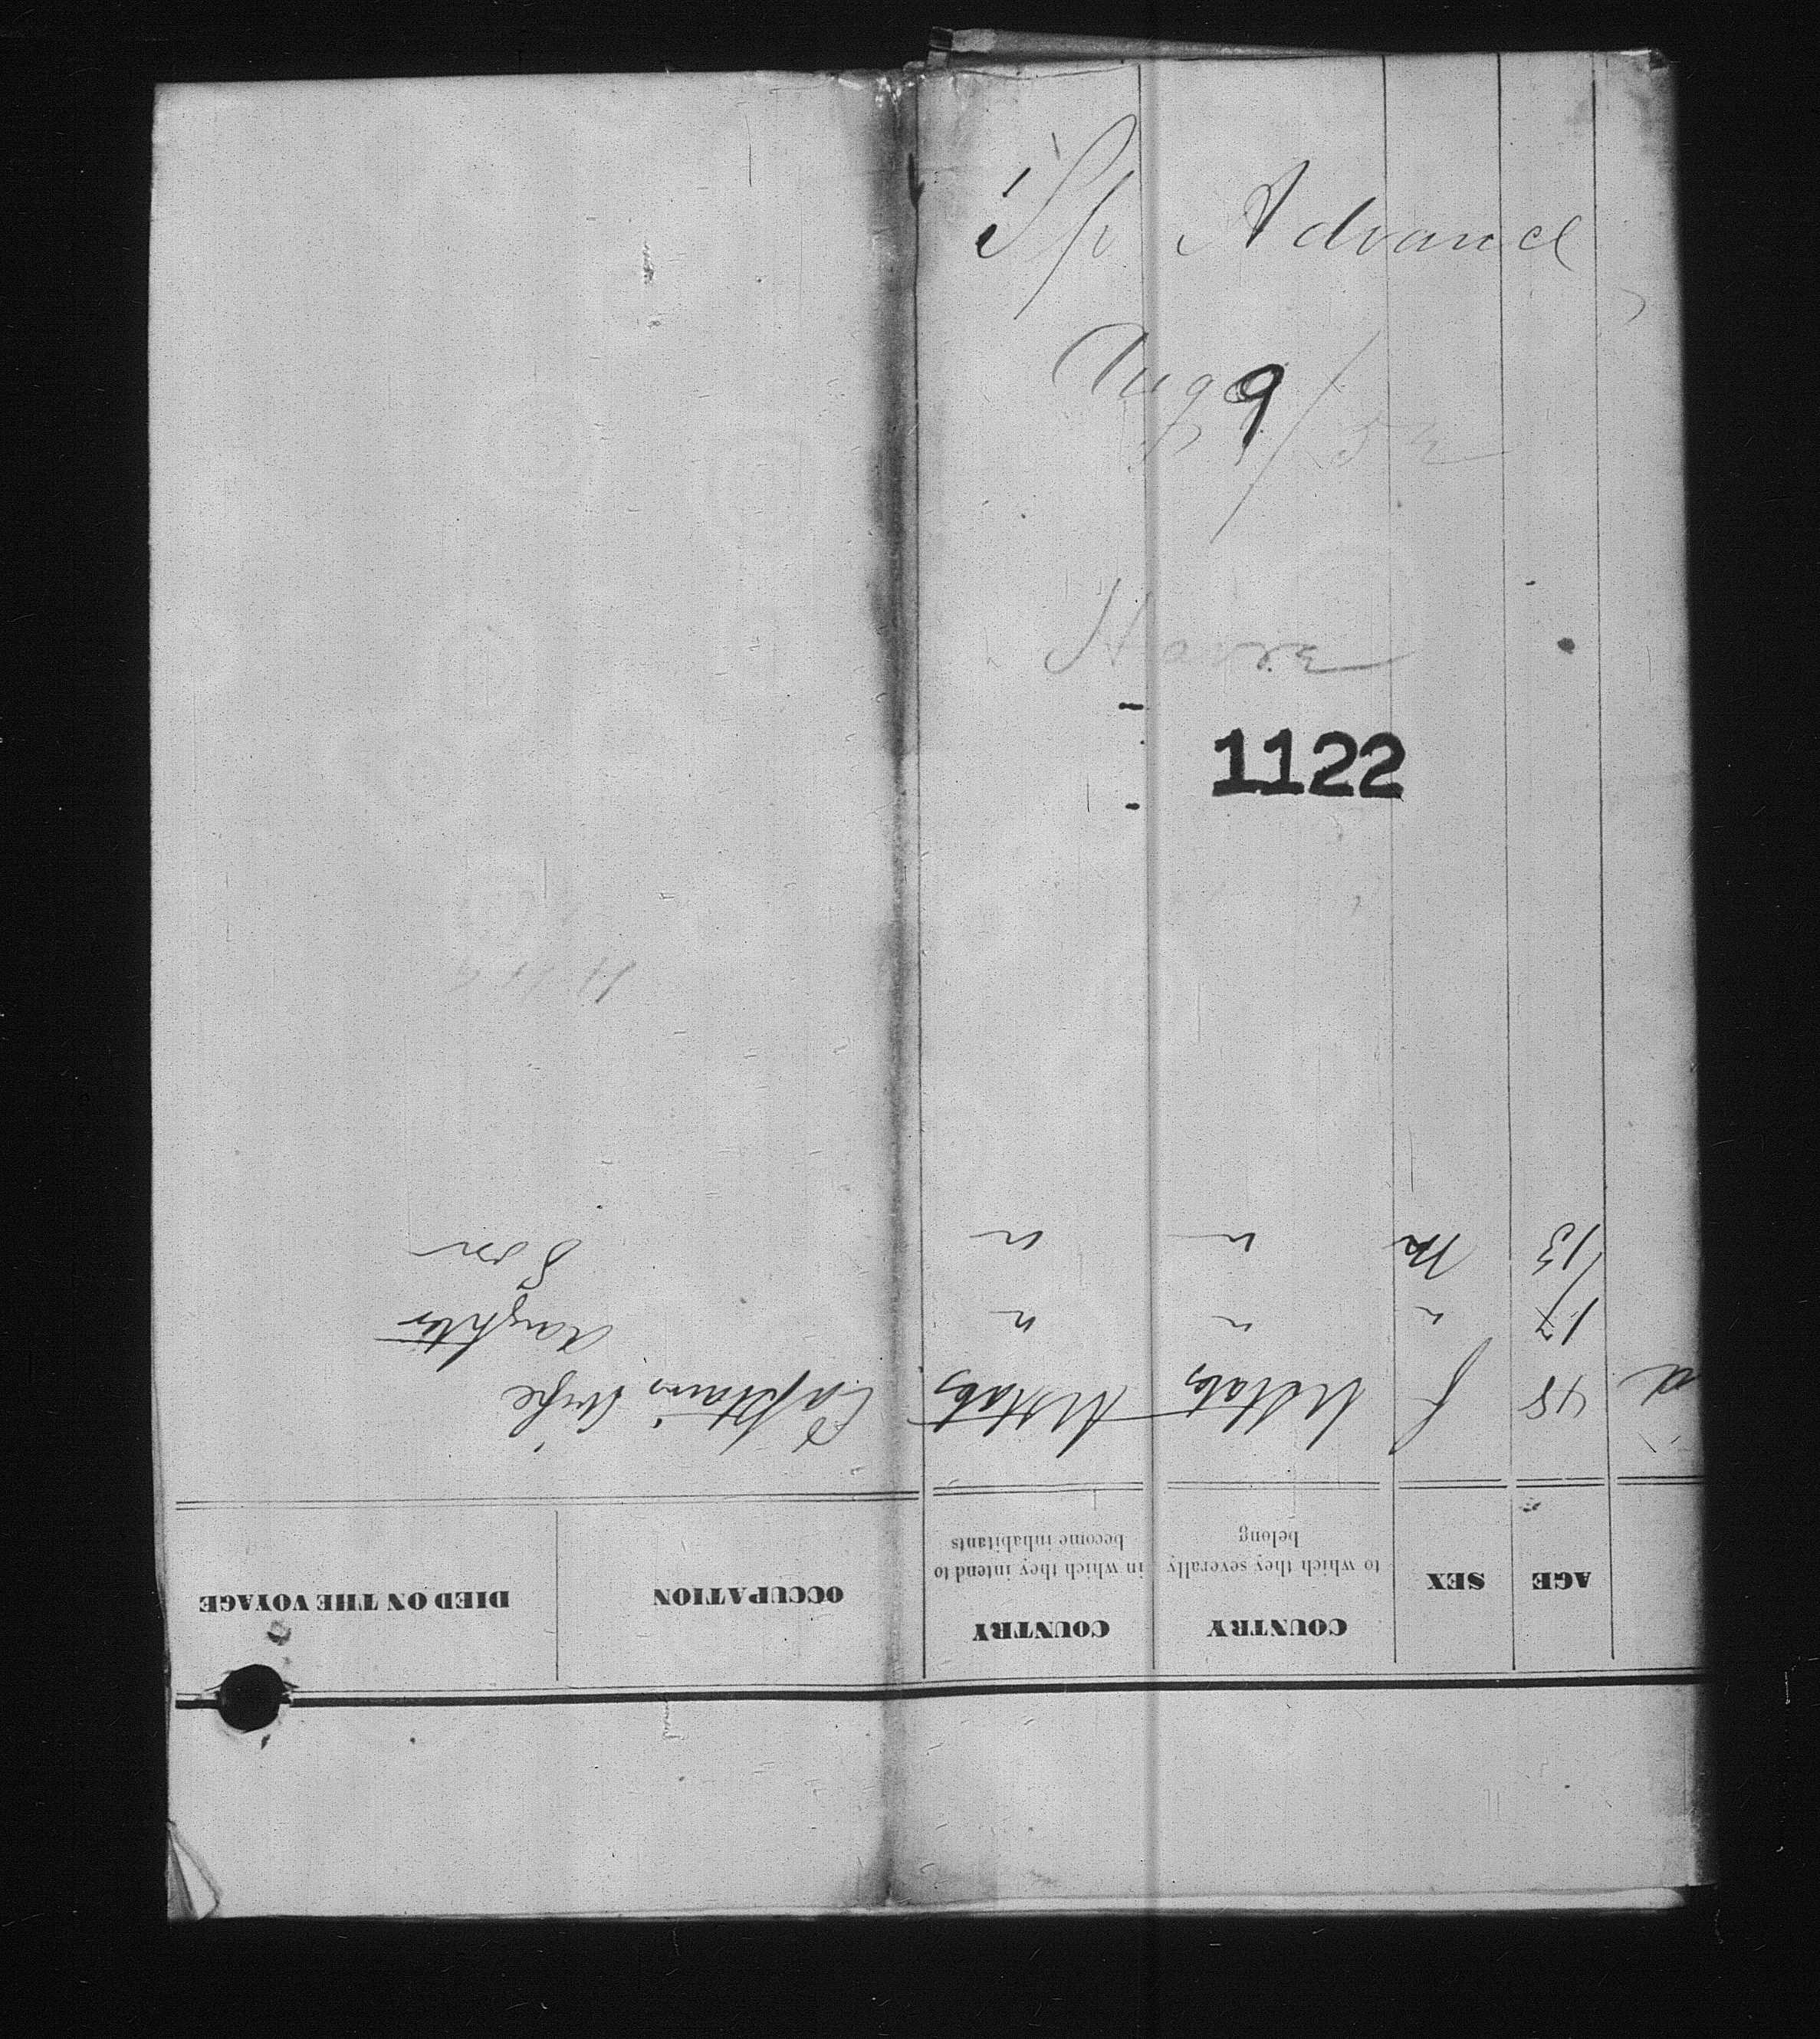 Sp Advance
Aug 9 / 52
Havre
1122
AGE SEX COUNTRY to which they severally belong COUNTRY in which they intend to become inhabitants OCCUPATION DIED ON THE VOYAGE
48 f UStates UStates Captains Wife
17 " " " daughter
13 M " " Son